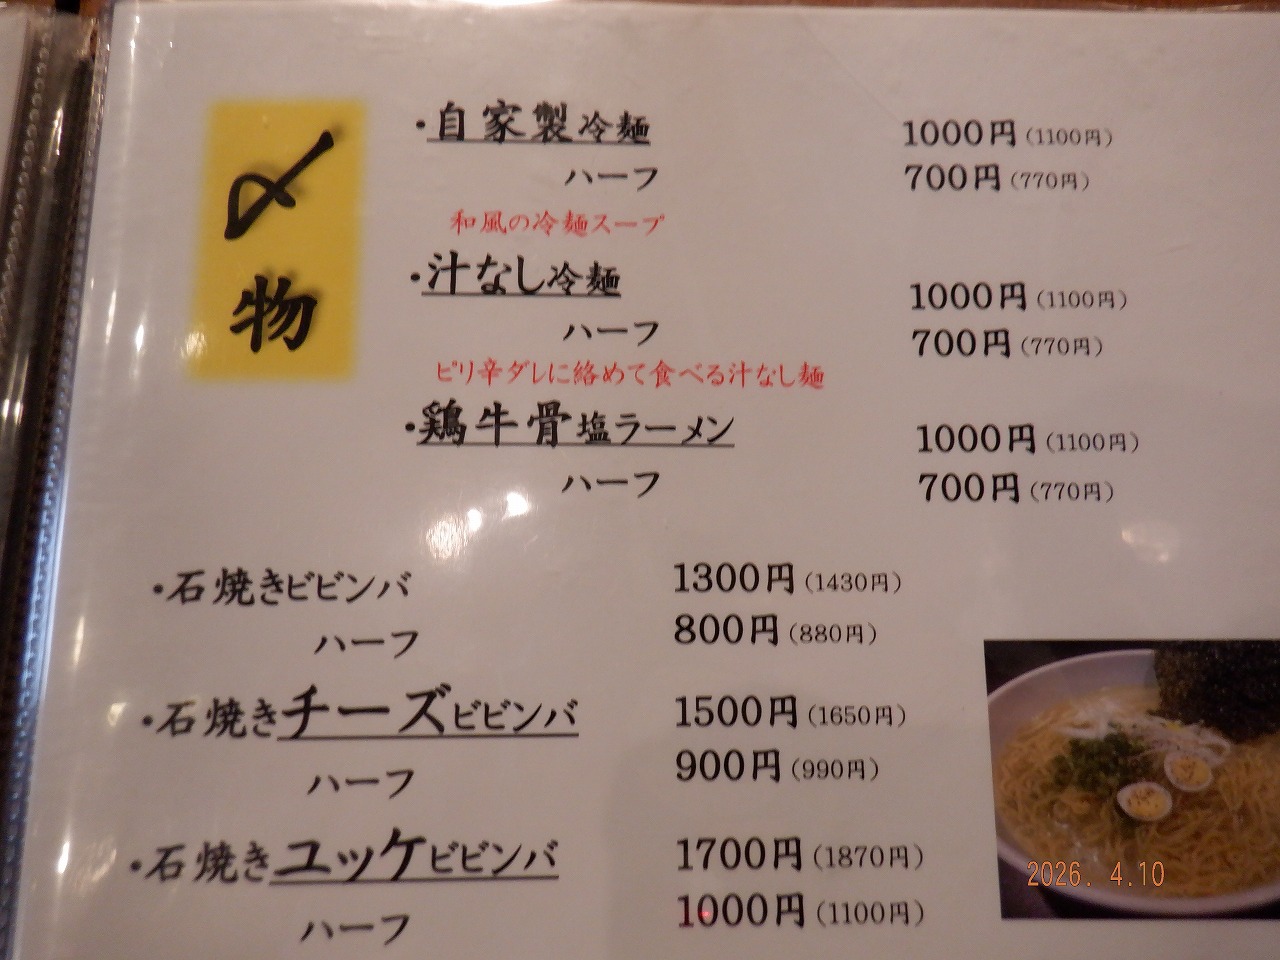 〆物
・自家製冷麺 1000円(1100円)
ハーフ 700円(770円)
和風の冷麺スープ
・汁なし冷麺 1000円(1100円)
ハーフ 700円(770円)
ピリ辛ダレに絡めて食べる汁なし麺
・鶏牛骨塩ラーメン 1000円(1100円)
ハーフ 700円(770円)
・石焼きビビンバ 1300円(1430円)
ハーフ 800円(880円)
・石焼きチーズビビンバ 1500円(1650円)
ハーフ 900円(990円)
・石焼きユッケビビンバ 1700円(1870円)
ハーフ 1000円(1100円)
2026. 4.10